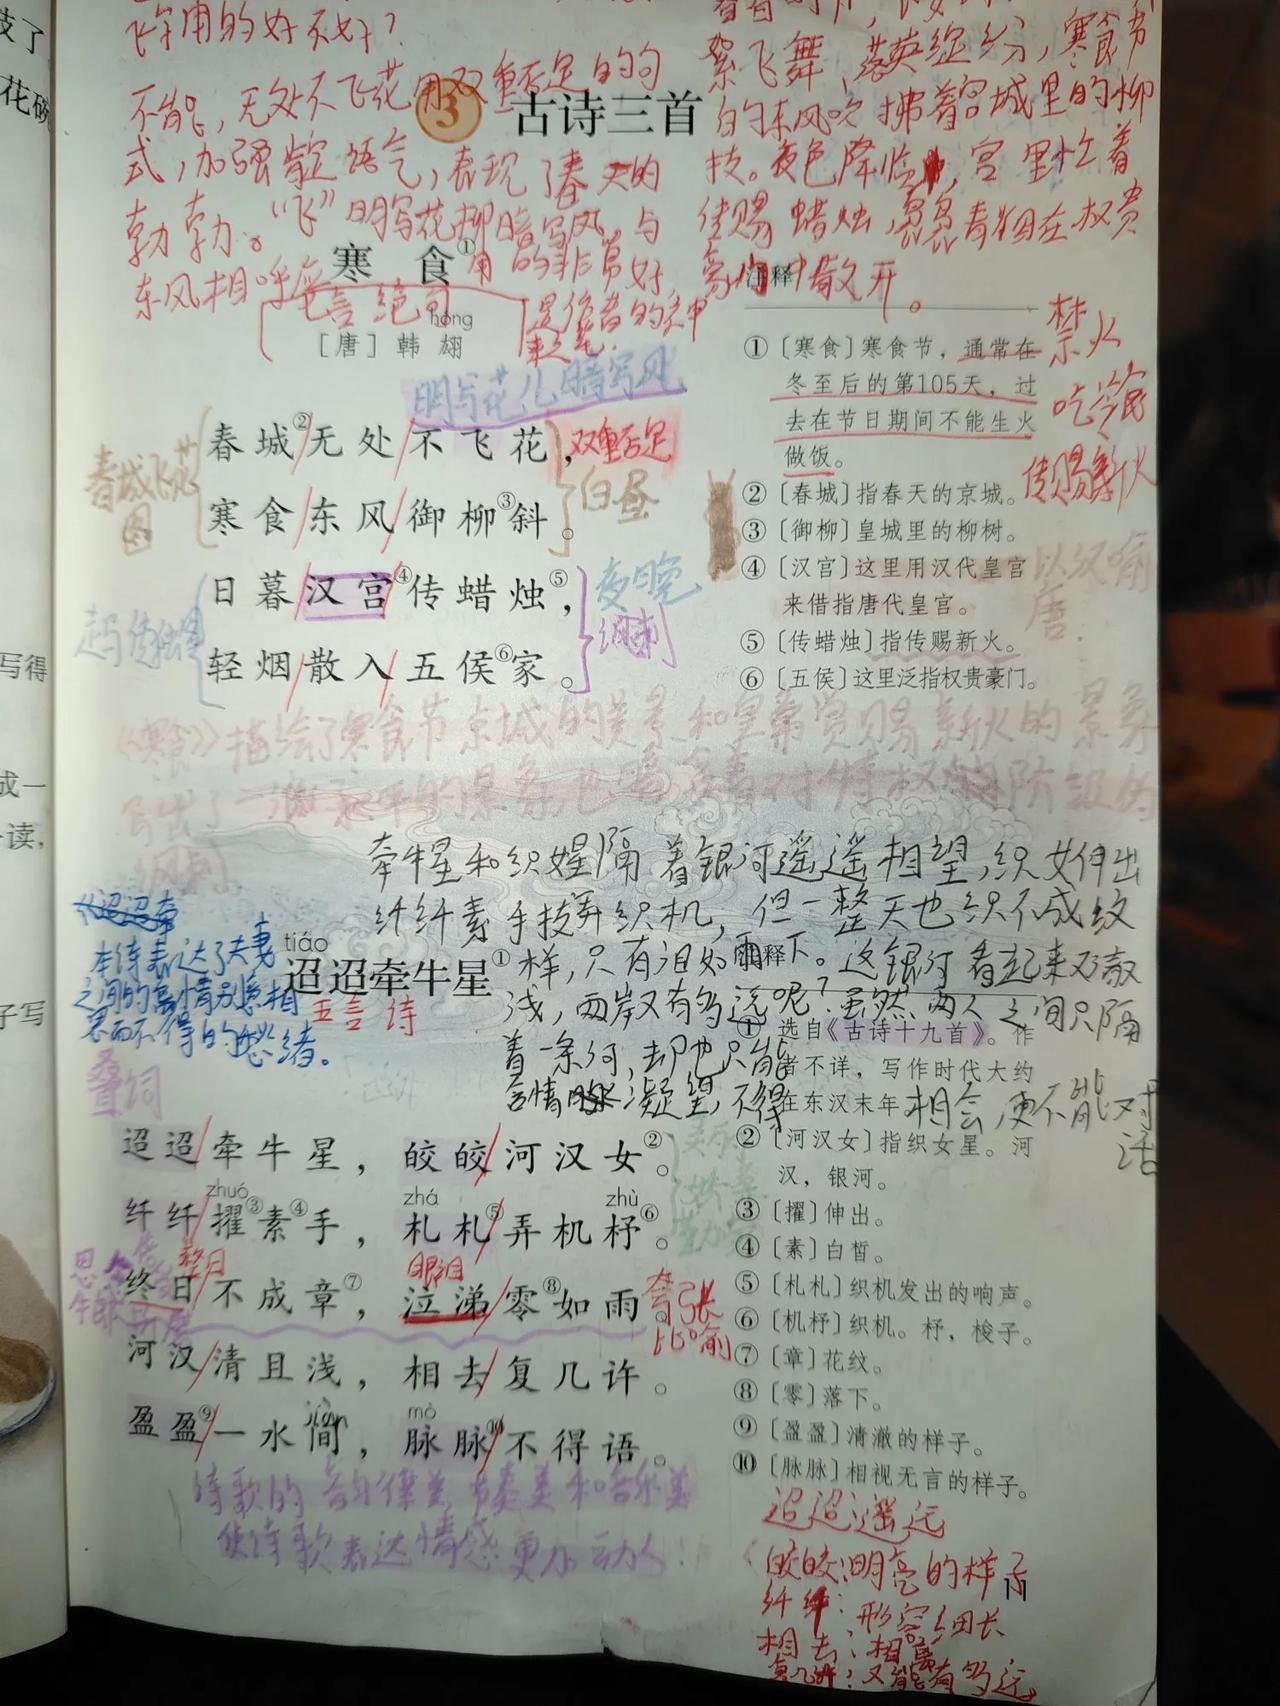 飞字用的好不好？
不能，无处不飞花用双重否定的句
式，加强肯定语气，表现了春天的
勃勃。“飞”明写花柳暗写风。与
东风相呼应
用的非常好，
是作者的神
来之笔.
絮飞舞，落英缤纷，寒食节
的东风吹拂着皇城里的柳
枝。夜色降临，宫里忙着
传赐蜡烛，袅袅青烟在权贵
豪门中散开。
3 古诗三首
寒食①
七言绝句
hóng
［唐］韩翃
明写花儿暗写风
春城②无处不飞花，
双重否定
寒食东风御柳③斜。
白昼
春城飞花
图
日暮汉宫④传蜡烛⑤，
夜晚
轻烟散入五侯⑥家。
讽刺
注释
①〔寒食〕寒食节，通常在
冬至后的第105天，过
去在节日期间不能生火
做饭。
②〔春城〕指春天的京城。
③〔御柳〕皇城里的柳树。
④〔汉宫〕这里用汉代皇宫
来借指唐代皇宫。
⑤〔传蜡烛〕指传赐新火。
⑥〔五侯〕这里泛指权贵豪门。
禁火
吃冷食
传赐新火
以汉喻
唐.
《寒食》描绘了寒食节京城的美景和皇帝赏赐新火的景象
写出了一派承平的景象，也暗含着对特权阶级的
讽刺
牵牛星和织女星隔着银河遥遥相望，织女伸出
纤纤素手拨弄织机，但一整天也织不成纹
样，只有泪如雨下。这银河看起来又清
浅，两岸又有多远呢？虽然两人之间只隔
着一条河，却也只能
含情脉脉凝望，不得
相会，更不能对
话
本诗表达了夫妻
之间的离情别绪相
思而不得的愁绪。
tiáo
迢迢牵牛星①
五言诗
叠词
迢迢牵牛星，皎皎河汉女②。
zhuó zhá zhù
纤纤擢③素④手，札札⑤弄机杼⑥。
整日
眼泪
终日不成章⑦，泣涕零⑧如雨。
夸张
比喻
河汉清且浅，相去复几许。
mò
盈盈⑨一水间，脉脉⑩不得语。
诗歌的音韵律美，节奏美和音乐美
使诗歌表达情感更加动人！
注释
①选自《古诗十九首》。作
者不详，写作时代大约
在东汉末年
②〔河汉女〕指织女星。河
汉，银河。
③〔擢〕伸出。
④〔素〕白皙。
⑤〔札札〕织机发出的响声。
⑥〔机杼〕织机。杼，梭子。
⑦〔章〕花纹。
⑧〔零〕落下。
⑨〔盈盈〕清澈的样子。
⑩〔脉脉〕相视无言的样子。
迢迢：遥远
皎皎：明亮的样子
纤纤：形容细长
相去：相离
复几许：又能有多远
11